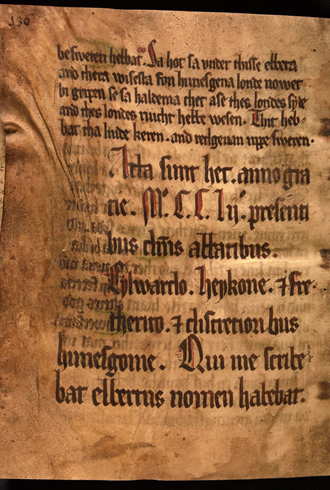 130
besweren hebbat. Sa hot sa vnder thisse elbera
and thera wisesta fon hunesgena londe nower
bi gripen se sa halderma ther ase thes londes
and thes londes riucht hebbe wesen. Thit heb-
bat tha liude keren. and vppe sweren.
Acta sunt hec. anno gra
cie. M. C. C. L ij. presenti
bus abbatibus.
Eylwardo. heykone. & fre-
therico. & discretioribus
hunesgonie. Qui me scribe
bat elbertus nomen habebat.